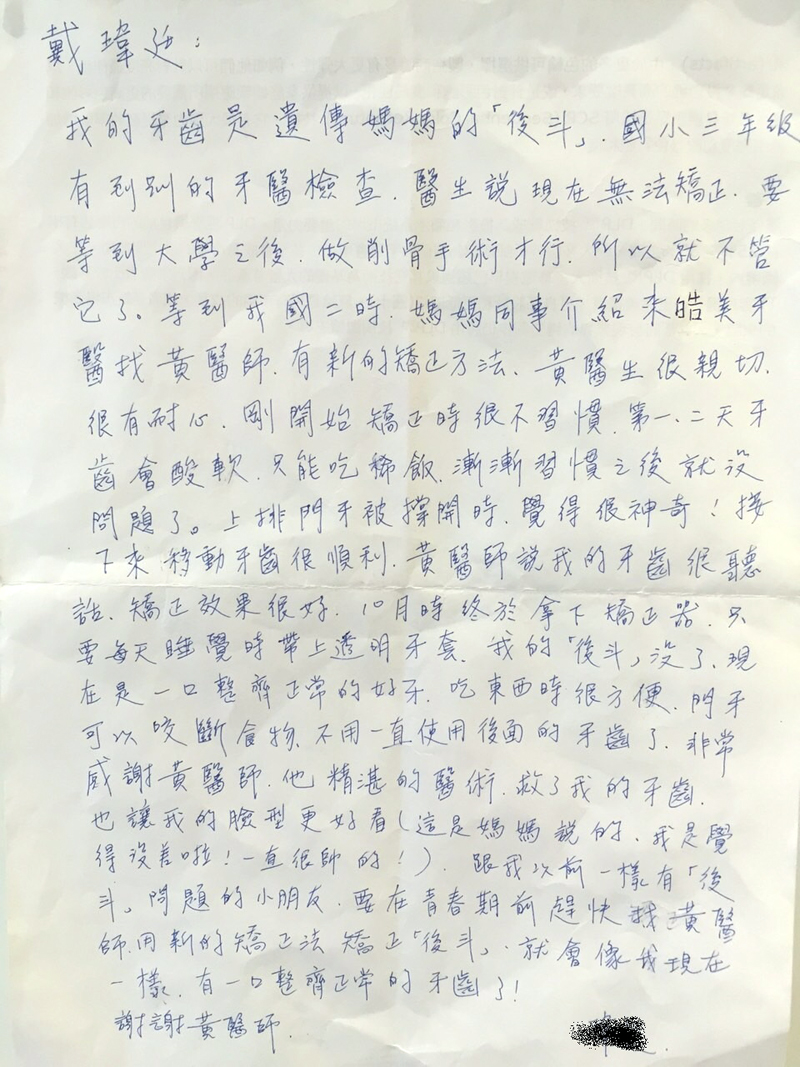 戴瑋廷：
我的牙齒是遺傳媽媽的「後斗」. 國小三年級
有到別的牙醫檢查. 醫生說現在無法矯正. 要
等到大學之後. 做削骨手術才行. 所以就不管
它了。等到我國二時. 媽媽同事介紹來皓美牙
醫找黃醫師. 有新的矯正方法. 黃醫生很親切.
很有耐心. 剛開始矯正時很不習慣. 第一、二天牙
齒會酸軟. 只能吃稀飯. 漸漸習慣之後就沒
問題了。上排門牙被撐開時. 覺得很神奇！接
下來移動牙齒很順利. 黃醫師說我的牙齒很聽
話. 矯正效果很好. 10月時終於拿下矯正器. 只
要每天睡覺時帶上透明牙套. 我的「後斗」沒了. 現
在是一口整齊正常的好牙. 吃東西時很方便. 門牙
可以咬斷食物. 不用一直使用後面的牙齒了. 非常
感謝黃醫師. 他精湛的醫術. 救了我的牙齒.
也讓我的臉型更好看(這是媽媽說的. 我是覺
得沒差啦！一直很帥的！). 跟我以前一樣有「後
斗」問題的小朋友. 要在青春期前趕快找黃醫
師. 用新的矯正法矯正「後斗」. 就會像我現在
一樣. 有一口整齊正常的牙齒了！
謝謝黃醫師.